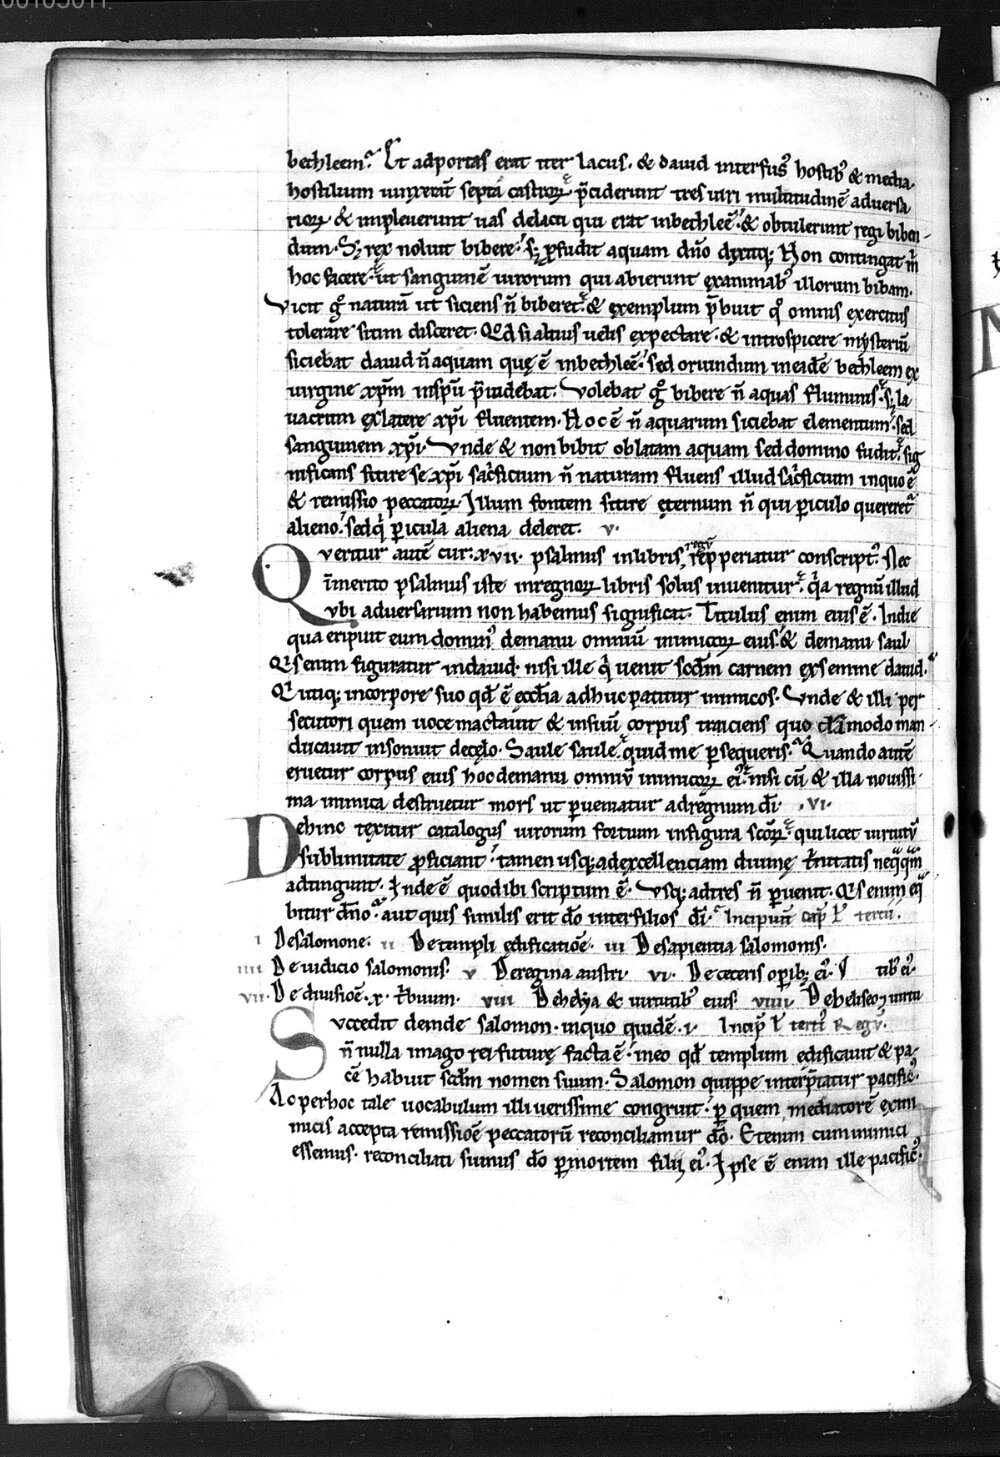 bethleem. Et ad portas erat iter lacus. & dauid interfus hostib' & media
hostilium uinxerat septa castroꝝ p̄ciderunt tres uiri multitudinē aduersa
rioꝝ & impleuerunt uas de lacu qui erat in bethleē. & obtulerunt regi biben
dum. Sꝫ rex noluit bibere. sꝫ ꝓfudit aquam dn̄o dixitqꝫ Non contingat m̄
hoc facere. ut sanguinē uirorum qui abierunt ex animab' illorum bibam.
Vicit gͦ naturā ut siciens n̄ biberet. & exemplum p̄buit qͦ omnis exercitus
tolerare sitim disceret. Qd̄ si altius uelis expectare. & introspicere mysteriū
siciebat dauid n̄ aquam quę ē in bethleē. sed oriundum in eadē bethleem ex
uirgine xp̄m in sp̄u p̄uidebat. Volebat gͦ bibere n̄ aquas fluminis. sꝫ la
uacrum ex latere xp̄i fluentem. Hoc ē n̄ aquarum siciebat elementum. sed
sanguinem xp̄i. Vnde & non bibit oblatam aquam sed domino fudit. sig
nificans sitire se xp̄i sac̄ficium n̄ naturam fluens illud sac̄ficium in quo ē
& remissio peccatoꝝ. Illum fontem sitire ęternum n̄ qui ꝑiculo quereret̄
alieno. sed qͥ ꝑicula aliena deleret. v.
Queritur autē cur. xvii. psalmus in libris regū repperiatur conscript'. Nec
īmerito psalmus iste in regnoꝝ libris solus inuenitur. qͥa regnū illud
ubi aduersarium non habemus significat. Titulus enim eius ē. In die
qua eripuit eum domin' de manu omniū inimicoꝝ eius. & de manu saul
Qͥs enim figuratur in dauid. nisi ille qͥ uenit scd̄m carnem ex semine dauid.
Qͥ utiqꝫ in corpore suo qd̄ ē ecc̄lia adhuc patitur inimicos. Vnde & illi per
secutori quem uoce mactauit & in suū corpus traiciens quo dā modo man
ducauit insonuit de cęlo. Saule saule quid me ꝑsequeris. Quando autē
eruetur corpus eius hoc de manu omniū inimicoꝝ ei'. nisi cū & illa nouissi
ma inimica destruetur mors ut ꝑueniatur ad regnum d̄i. vi.
Dehinc texitur catalogus uirorum fortium in figura sc̄oꝝ. qui licet uirtutū
sublimitate ꝓficiant. tamen usqꝫ ad excellenciam diuinę t̄nitatis neqͣqͣm
adtingunt. Inde ē quod ibi scriptum ē. Vsqꝫ ad tres n̄ ꝑuenit. Qͥs enim eq̄
bitur dn̄o. aut quis similis erit dō inter filios d̄i. Incipiunt cap̄ l̄ tertii.
i De salomone. ii De templi edificatiōē. iii De sapientia salomonis.
iiii De iudicio salomonis. v De regina austri. vi. De ceteris oꝑibꝫ ei'. tib' ei'.
vii. De diuisiōē. x. t̄buum. viii De helya & uirtutib' eius. viiii De heliseo & uirtu
Succedit deinde salomon. in quo quidē. i Incip̄ l̄ tertī Regū.
n̄ nulla imago rei futurę facta ē. in eo qd̄ templum edificauit & pa
cē habuit scd̄m nomen suum. Salomon quippe interp̄tatur pacific'.
Ac per hoc tale uocabulum illi uerissime congruit. ꝑ quem mediatorē ex ini
micis accepta remissiōē peccatorū reconciliamur dō. Etenim cum inimici
essemus. reconciliati sumus dō ꝑ mortem filii ei'. Ipse ē enim ille pacific'.